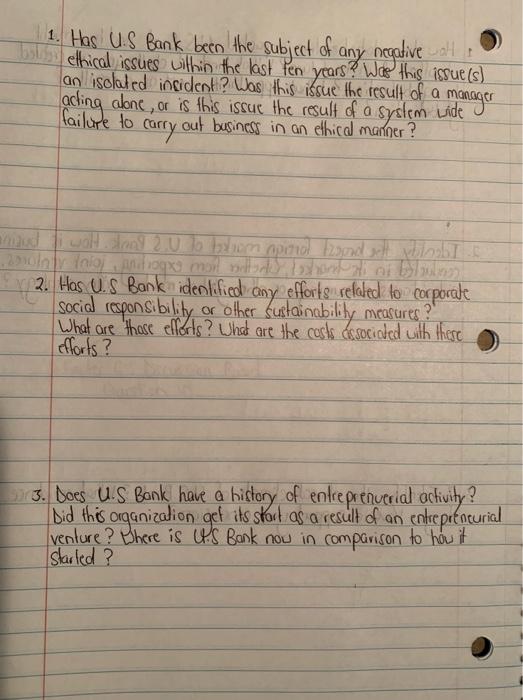 1. Has U.S Bank been the subject of any negative
ethical issues within the last ten years? Was this issue(s)
an isolated incident? Was this issue the result of a manager
acting alone, or is this issue the result of a system wide
failure to carry out business in an ethical manner?
2. Has U.S Bank identified any efforts related to corporate
social responsibility or other sustainability measures?
What are those efforts? What are the costs associated with these
efforts?
3. Does U.S Bank have a history of entreprenuerial activity?
Did this organization get its start as a result of an entrepreneurial
venture? Where is US Bank now in comparison to how it
started?